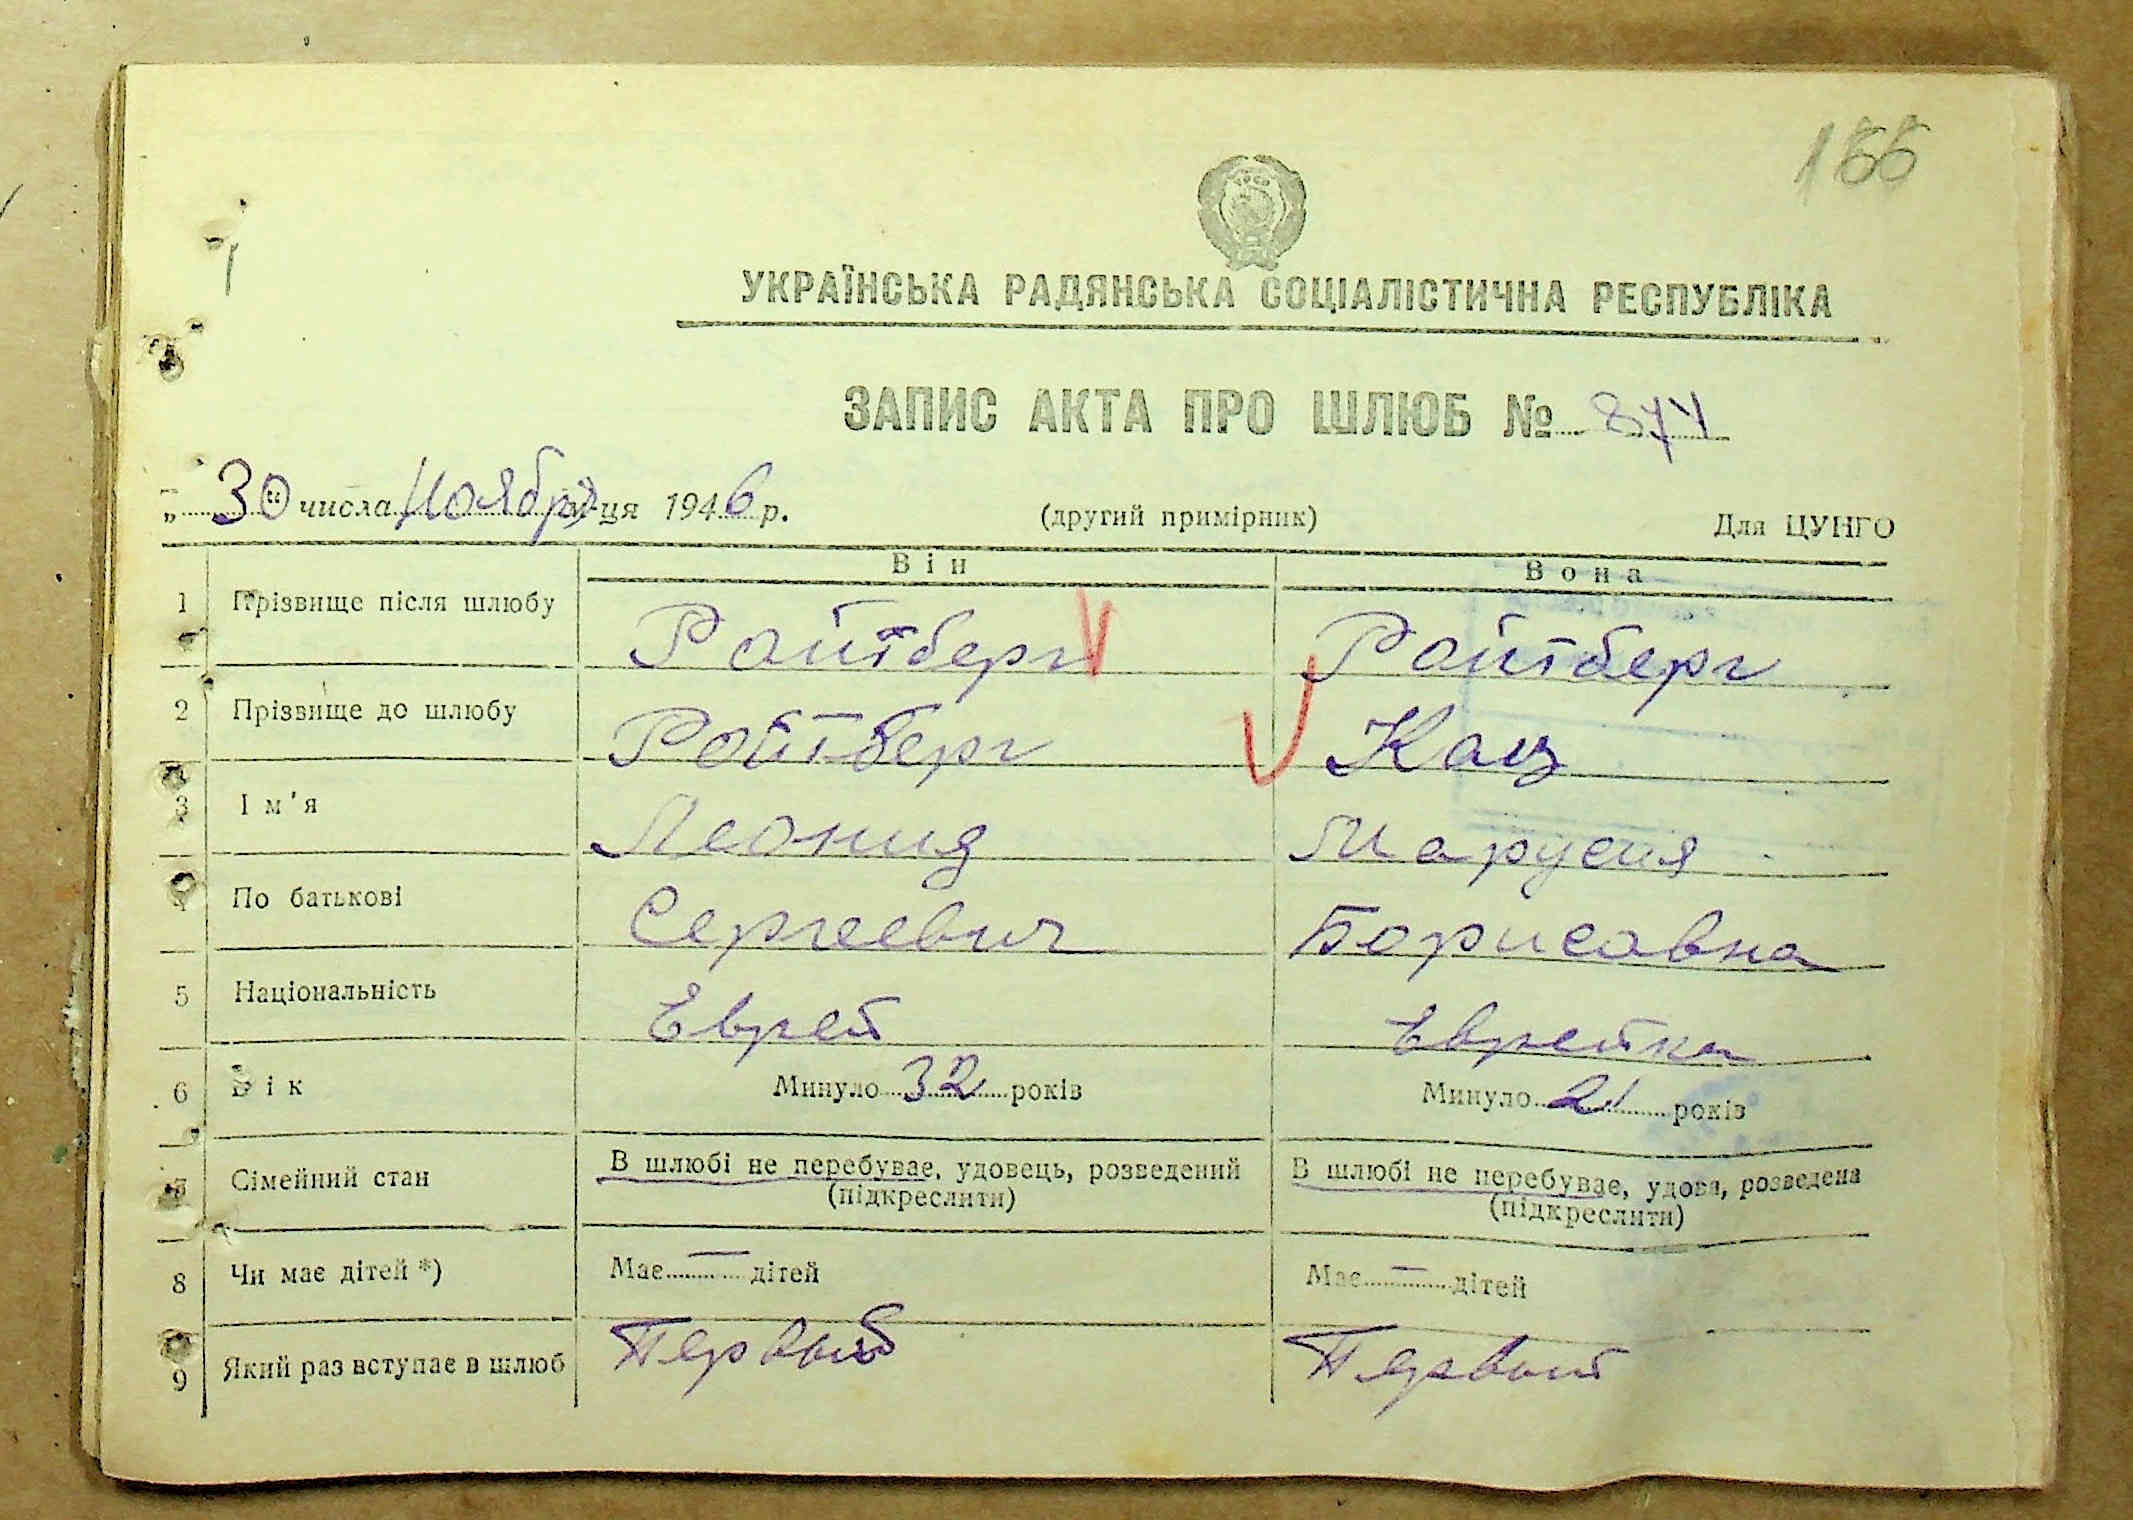 166
УКРАЇНСЬКА РАДЯНСЬКА СОЦІАЛІСТИЧНА РЕСПУБЛІКА
ЗАПИС АКТА ПРО ШЛЮБ №
„30" числа Ноября м-ця 1946 р. (другий примірник) Для ЦУНГО
Він Вона
1 Прізвище після шлюбу Ройтберг Ройтберг
2 Прізвище до шлюбу Ройтберг Кац
3 Ім'я Леонид Маруся
4 По батькові Сергеевич Борисовна
5 Національність Еврей Еврейка
6 Вік Минуло 32 років Минуло 21 років
7 Сімейний стан В шлюбі не перебуває, удовець, розведений В шлюбі не перебуває, удова, розведена
(підкреслити) (підкреслити)
8 Чи має дітей *) Має — дітей Має — дітей
9 Який раз вступає в шлюб Первый Первый